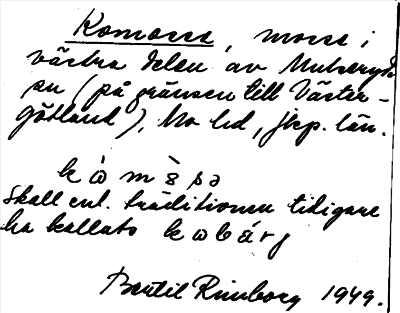 Komosse, mosse i
västra delen av Mulseryds
sn (på gränsen till Väster-
götland), Mo hd, jkp. län.
kòmɜ̀sə
Skall enl. traditionen tidigare
ha kallats kobárj
Bertil Rimborg 1949.